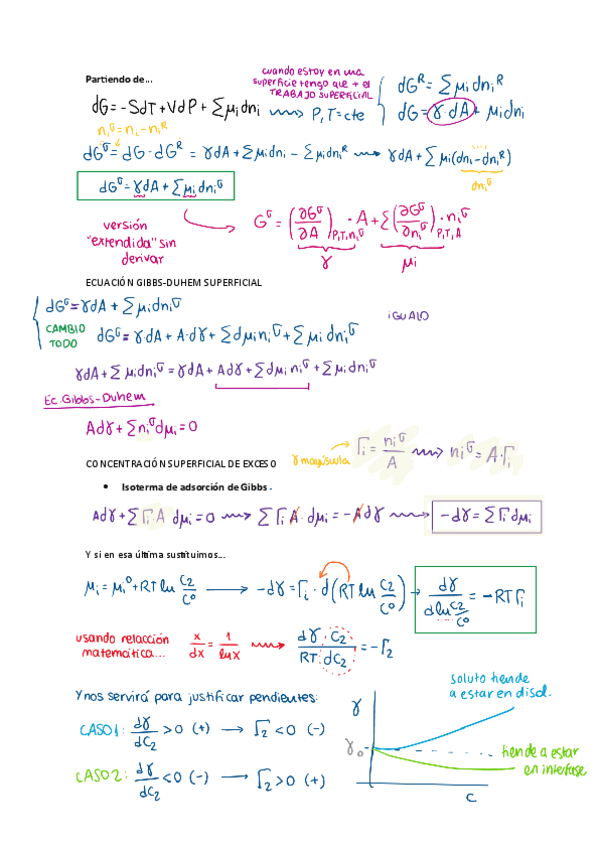 Partiendo de...
cuando estoy en una
superficie tengo que + el
TRABAJO SUPERFICIAL
dG = -SdT + VdP + Σμᵢdnᵢ ⟿ P,T=cte
dGᴿ = Σμᵢdnᵢᴿ
dG = γ·dA + μᵢdnᵢ
nᵢᵟ = nᵢ - nᵢᴿ
dGᵟ = dG - dGᴿ = γdA + Σμᵢdnᵢ - Σμᵢdnᵢᴿ ⟿ γdA + Σμᵢ(dnᵢ-dnᵢᴿ)
dnᵢᵟ
dGᵟ = γdA + Σμᵢdnᵢᵟ
versión
"extendida" sin
derivar
Gᵟ = (∂Gᵟ/∂A)P,T,nᵢᵟ · A + Σ(∂Gᵟ/∂nᵢᵟ)P,T,A · nᵢᵟ
γ μᵢ
ECUACIÓN GIBBS-DUHEM SUPERFICIAL
dGᵟ = γdA + Σμᵢdnᵢᵟ
IGUALO
CAMBIO
TODO
dGᵟ = γ·dA + A·dγ + Σdμᵢnᵢᵟ + Σμᵢ dnᵢᵟ
γdA + Σμᵢdnᵢᵟ = γdA + Adγ + Σdμᵢ nᵢᵟ + Σμᵢdnᵢᵟ
Ec. Gibbs-Duhem
Adγ + Σnᵢᵟdμᵢ = 0
CONCENTRACIÓN SUPERFICIAL DE EXCESO
γ mayúscula
Γᵢ = nᵢᵟ/A ⟿ nᵢᵟ = A·Γᵢ
• Isoterma de adsorción de Gibbs -
Adγ + ΣΓᵢ·A dμᵢ = 0 ⟿ ΣΓᵢ·A·dμᵢ = -Adγ ⟿ -dγ = ΣΓᵢdμᵢ
Y si en esa última sustituimos...
μᵢ = μᵢ⁰ + RT ln C₂/C⁰ → -dγ = Γᵢ · d(RT ln C₂/C⁰) → dγ/dln C₂/C⁰ = -RTΓᵢ
usando relacción
matemática...
x/dx = 1/lnx ⟿ dγ·C₂/RT·dC₂ = -Γ₂
Y nos servirá para justificar pendientes:
CASO 1: dγ/dC₂ > 0 (+) → Γ₂ < 0 (-)
CASO 2: dγ/dC₂ < 0 (-) → Γ₂ > 0 (+)
soluto tiende
a estar en disol.
γ
γ₀
tiende a estar
en interfase
C